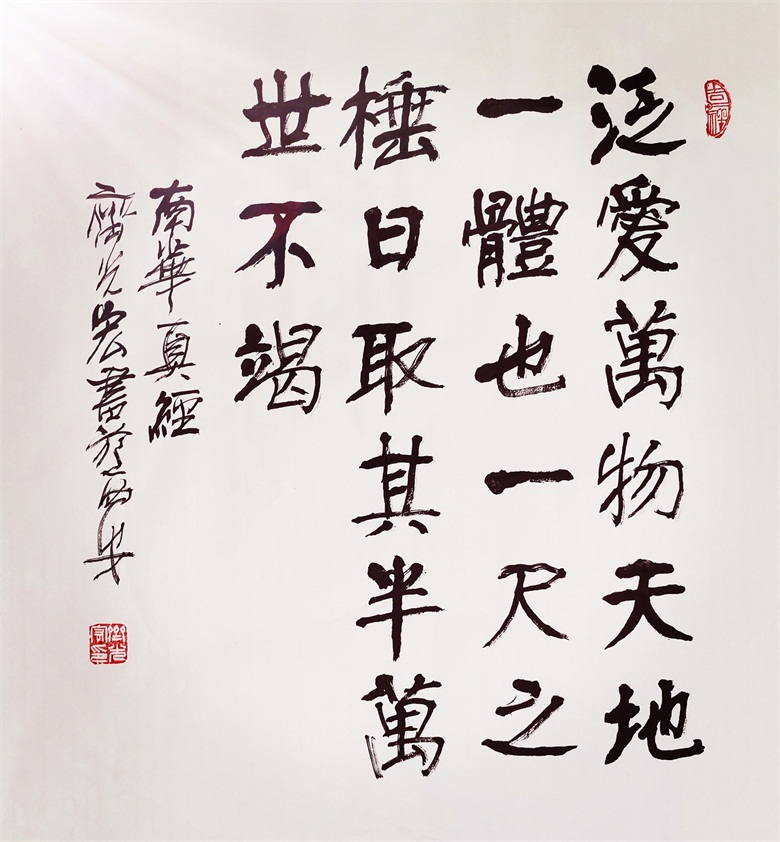 泛愛萬物天地
一體也一尺之
棰日取其半萬
世不竭
南華真經
光宏書於西安